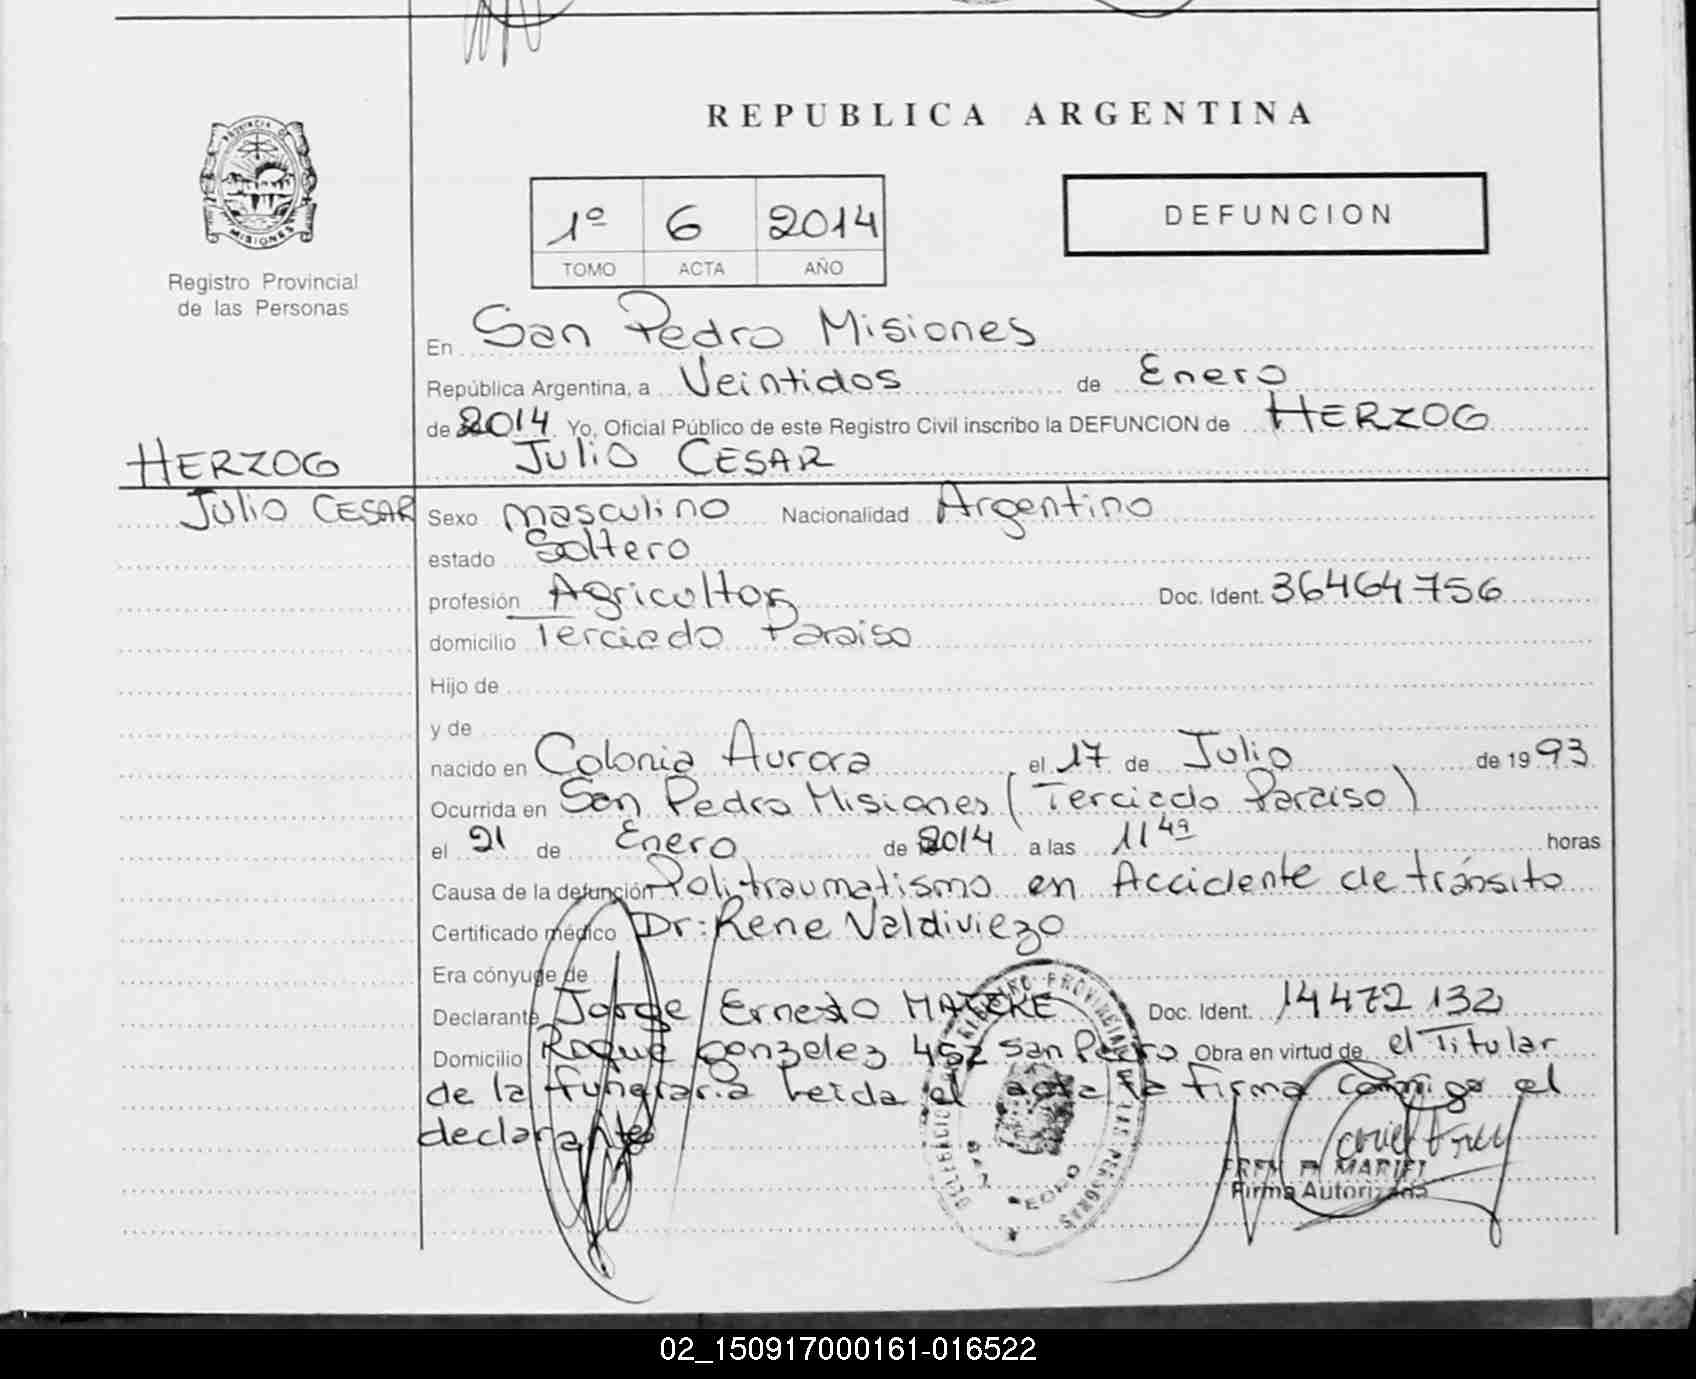 REPUBLICA ARGENTINA
PROVINCIA DE
MISIONES
Registro Provincial
de las Personas
1º 6 2014
TOMO ACTA AÑO
DEFUNCION
En San Pedro Misiones
República Argentina, a Veintidos de Enero
de 2014 Yo, Oficial Público de este Registro Civil inscribo la DEFUNCION de HERZOG
JULIO CESAR
HERZOG
JULIO CESAR
Sexo masculino Nacionalidad Argentino
estado Soltero
profesión Agricultor Doc. Ident. 36464756
domicilio Terciado Paraiso
Hijo de
y de
nacido en Colonia Aurora el 17 de Julio de 1993
Ocurrida en San Pedro Misiones (Terciado Paraiso)
el 21 de Enero de 2014 a las 11 horas
Causa de la defunción Politraumatismo en Accidente de tránsito
Certificado médico Dr: Rene Valdiviezo
Era cónyuge de
Declarante Jorge Ernesto Doc. Ident. 14472132
Domicilio Roque gonzalez 452 San Pedro Obra en virtud de el Titular
de la funeraria Leida el acta la firma conmigo el
declarante
Firma Autorizada
02_150917000161-016522